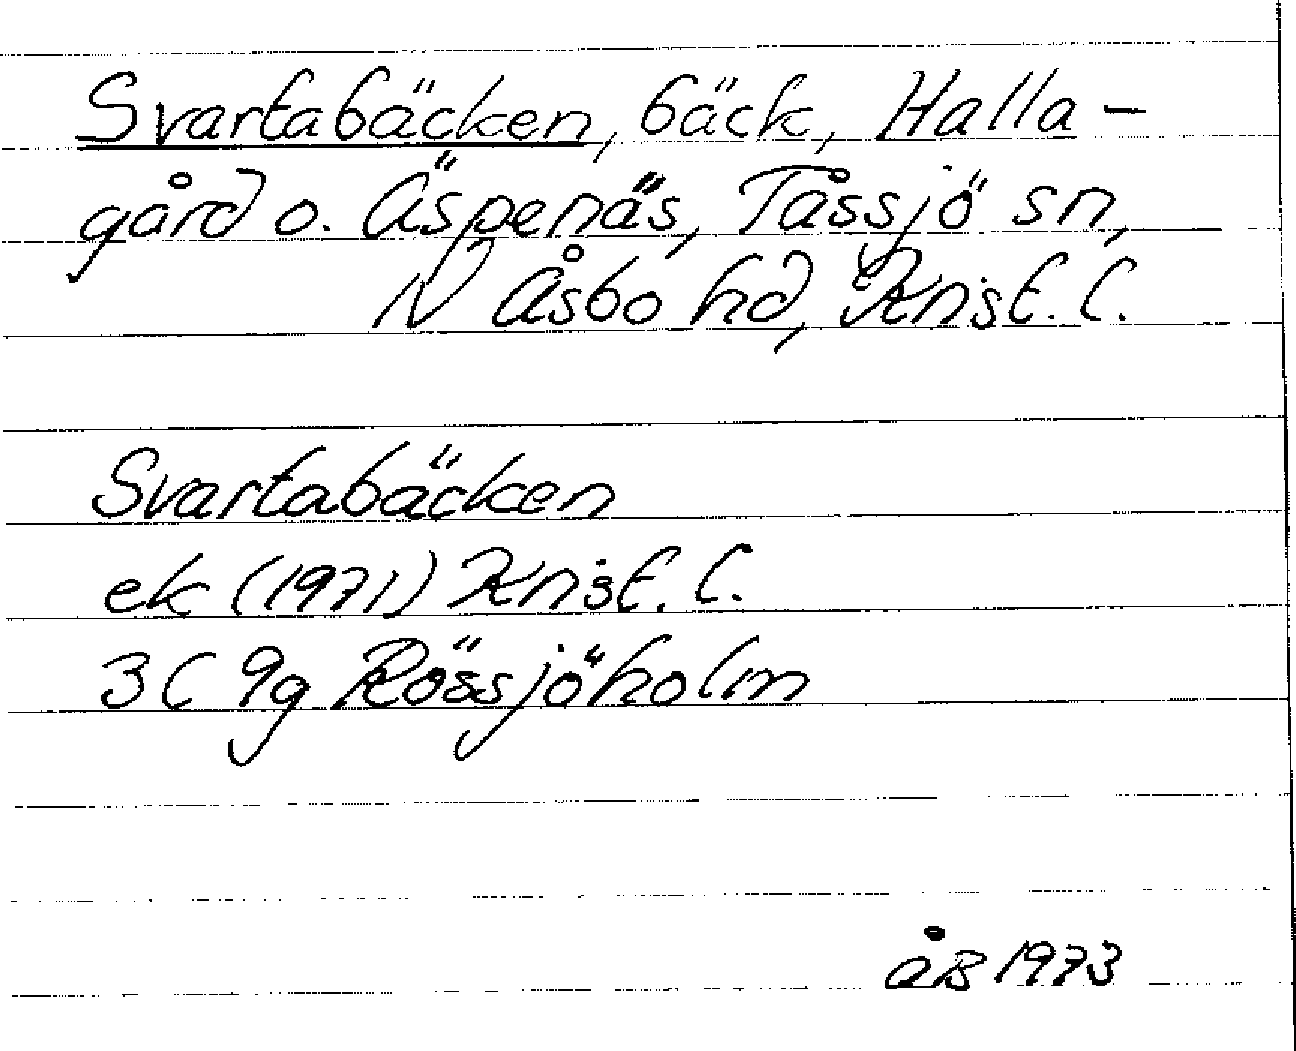 Svartabäcken, bäck, Halla-
gård o. Äspenäs, Tåssjö sn,
N Åsbo hd, Krist. l.
Svartabäcken
ek (1971) Krist. l.
3C 9g Rössjöholm
åB 1973